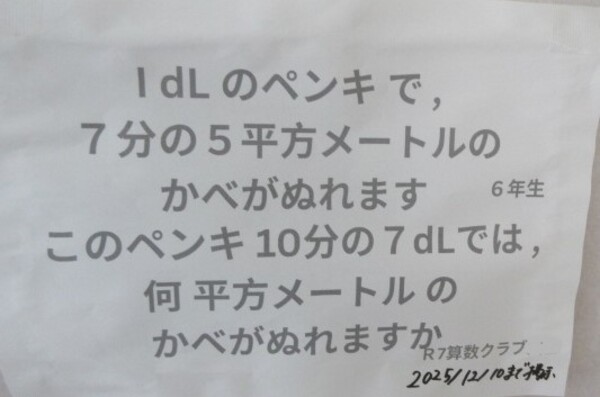 1dLのペンキで,
7分の5平方メートルの
かべがぬれます
6年生
このペンキ10分の7dLでは,
何平方メートルの
かべがぬれますか
R7算数クラブ
2025/12/10まで掲示